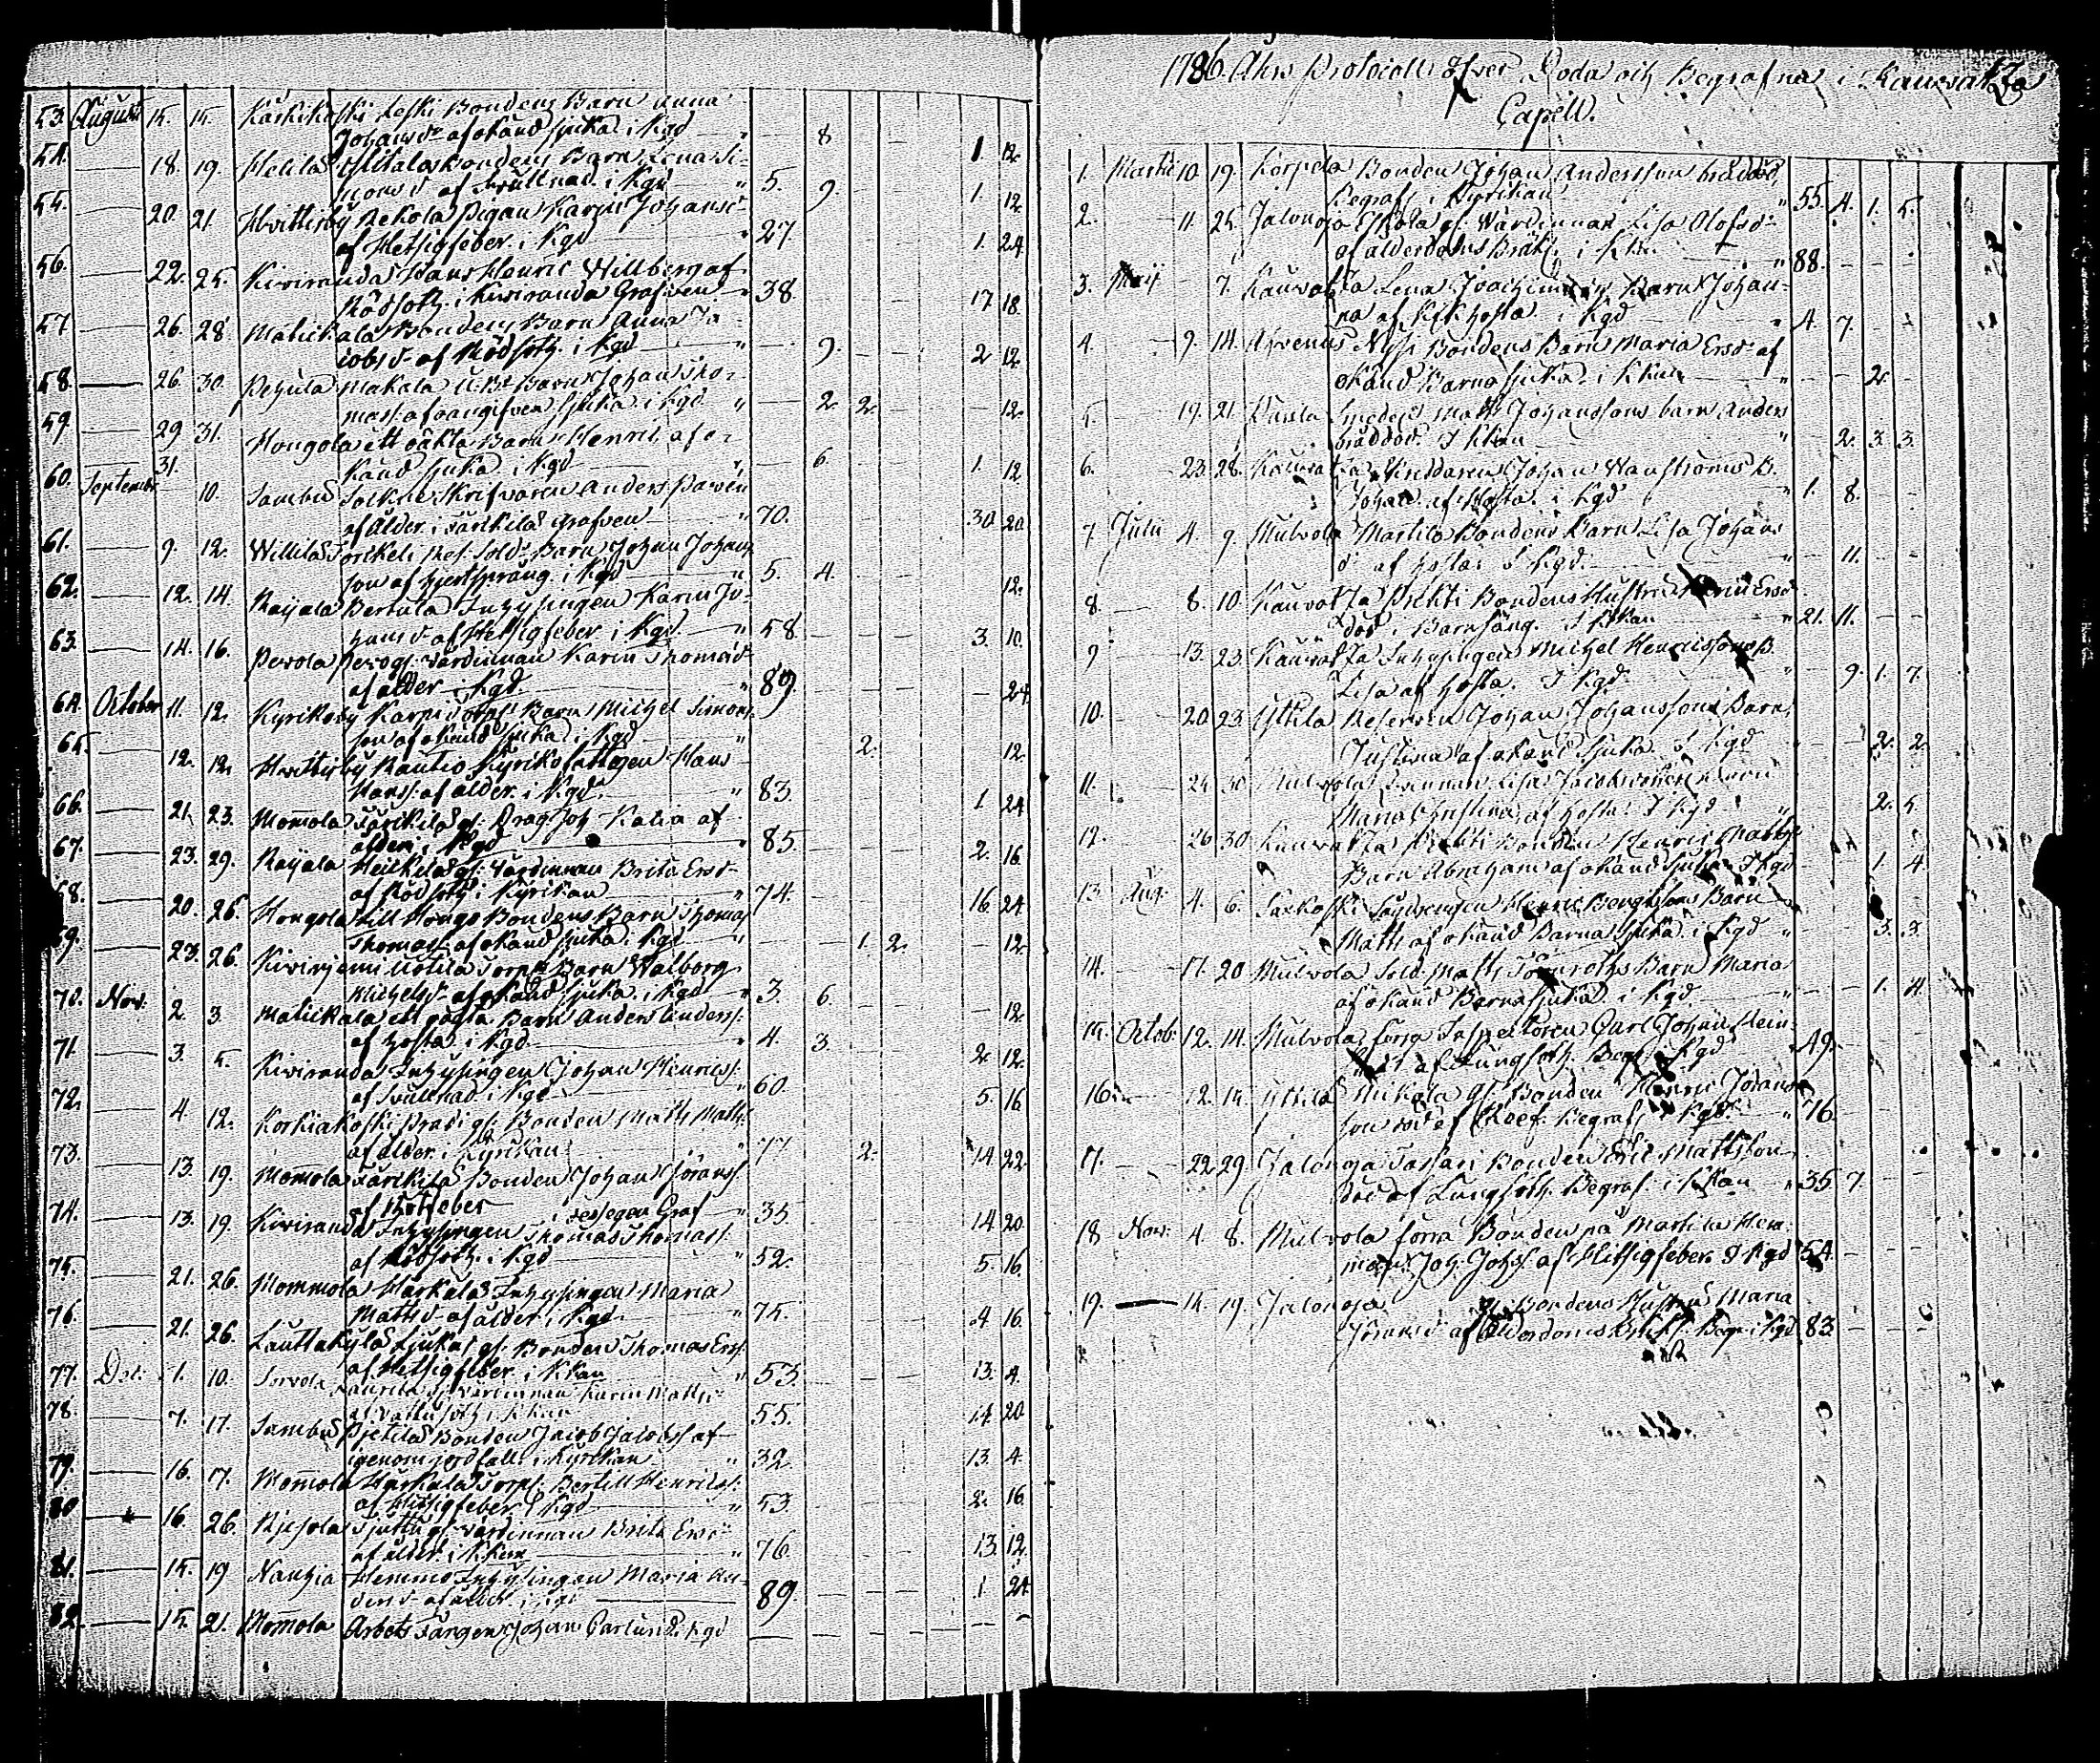 53. August 15. 15. Karhikoski Leski Bondens Barn Anna
Johansd:r af okänd sjuka i Kgd " 8 1. 12.
54. 18. 19. Melila Ylitalo Bondens Barn Lena Si-
monsd:r af Svullnad. i Kgd " 5. 9. 1. 12
55. 20. 21. Hvittisby Rekola Pigan Karin Johansd:
af Hetsigfeber. i Kgd " 27. 1. 24.
56. 22. 25. Kiviranda Hans Henric Willberg af
Rödsoth. i Kiviranda Grafven " 38. 17 18.
57 26 28. Matickala Bondens Barn Anna Ja-
cobsd- af Rödsoth. i Kgd " 9. 2 12.
58. 26. 30. Pehula Makala Barn Johan Tho-
mass: af oangifven Sjuka. i Kgd " 2. 2. 12.
59. 29 31. Hongola ett oäkta Barn Henric af o-
känd sjuka i Kgd " 6. 1. 12
60. September 31. 10. Sambu Sockne Skrifvaren Anders
af Ålder. i Tärckilä Grafven " 70. 30 20
61. 9. 12. Willilä Torikeli Res: Sold: Barn Johan Johans
son af hjertsprång. i Kgd " 5. 4. 12.
62. 12. 14. Raijala Bertula Inhysingen Karin Jo-
hansd- af Hetsigfeber i Kgd. " 58. 3. 10.
63. 14. 16. Pevola gl: Värdinnan Karin Thomasd-
af ålder i Kgd. " 89. 24.
64. October 11. 12. Kyrikoby Karpi Torp: Barn Michel Simons-
son af okänd sjuka i Kgd " 2. 12.
65. 12. 12. Hvittisby Rautio Kyriko fattigen Hans
Hanss: af ålder. i Kgd. " 83. 1. 24
66. 21. 23. Mom̄ola Tärikilä gl: Drag Joh Kalia af
ålder i Kgd " 85. 2. 16.
67. 23. 29. Raijala Heickilä gl: Värdinnan Brita Ersd-
af Rödsoth i Kyrikan " 74. 16. 24
68. 20. 26. Hongola Lill Hongo Bondens Barn Thomas
Thomass: af okänd sjuka i Kgd " 1. 2. 12.
69. 23. 26. Kivinjemi Uotila Torp: Barn Walborg
Michelsd- af okänd sjuka. i Kgd " 3. 6. 12.
70. Nov. 2. 3. Matickala ett oägta Barn Anders Anderss:
af hosta i Kgd " 4. 3. 2. 12.
71. 3. 5. Kiviranda Inhysingen Johan Henricss:
af Svullnad i Kgd " 60. 5. 16.
72. 4. 12. Korkiakoski gl: Bonden Matts Matts:
af ålder. i Kyrikan " 77 2. 14 22.
73. 13. 19. Mom̄ola Tärikilä Bonden Johan Jöranss:
af Rötfeber i Graf " 35. 14 20.
74. 13. 19. Kiviranda Inhysingen Thomas Thomass:
af Rödsoth. i Kgd " 52. 5. 16.
75. 21. 26. Mommola Harkala Inhysingen Maria
Mattsd- af ålder i Kgd " 75. 4 16.
76. 21. 26. Lauttakylä Ljuka gl: Bonden Thomas Ers:
af Hetsigfeber. i Kkan " 53. 13. 4.
77. Dec: 1. 10. Sorvola Laurila gl: Värdinnan Karin Mattsd:
af Vattusoth i Kkan 55. 14. 20
78. 7. 17. Sambu Pietilä Bonden Jacob Jacobss: af
igenom jordfall i Kyrikan " 32 13. 4.
79. 16. 17. Mom̄ola Harkala Torp: Bertill Henricss:
af Hitsigfeber i Kgd " 53 2. 16.
80 16. 26. Riesola Sjuttu gl: Värdinnan Brita Ersd:
af ålder. i Kkan " 76. 13. 12.
81. 15. 19 Nanhia Hemmo Inhysingen Maria An-
dersd- af ålder i Kgd 89. 1. 24.
82. 15. 21. Mom̄ola Arbets Fången Johan Carlund. Kgd
1786. Åhrs Protocoll öfver Döda och Begrafna i Kauvatza
Capell.
1. Martii 10. 19. Korpela Bonden Johan Andersson bråddöd,
Begrafs i Kyrikan " 55. 4. 1. 5.
2. 11. 25. Jalonoja Eskola gl: Wärdinnan Lisa Olofsd:
af ålderdoms Bräkl: i Kkn " 88.
3. Maij 7. Kauvatza Lena Joachimsd:s Barn Johan-
na af Kikhosta. i Kgd " 4. 7.
4. 9. 14. Bondens Barn Maria Ersd: af
okänd Barnasjuka. i Kkan " 2.
5. 19. 21. Smeden Matts Johanssons barn Anders
bråddöd. I Kkan " 2. 3. 3.
6. 23. 28. Kauvatza Johan B.
Johan af Hosta. i Kgd " 1. 8.
7. Julii 4. 9. Mulvola Martila Bondens Barn Lisa Johans
d: af hosta. I Kgd. 11.
8. 8. 10. Kauvatza Pirkti Bondens Hustru Ersd:
död i Barnsäng. I Kkan " 21. 11.
9 13. 23. Kauvatza Inhysingen Michel Henricssons B.
Lisa af hosta. I Kgd. " 9. 1. 7.
10. 20 23 Yttilä Reserven Johan Johanssons Barn
Justina af okänd sjuka. I Kgd 2. 2.
11. 24. 30. Mulvola Lisa
Maria Christina, af hosta. I Kgd " 2. 5.
12. 26 30. Kauvatza Pirkti Bonden Henric Mattss:
Barn Abraham af okänd sjuka I Kgd 1. 4.
13. Aug: 4. 6. Henric Bengtssons Barn
Matts af okänd Barna sjuka. i Kgd " 3. 3.
14. 17. 20 Mulvola Sold: Matts Barn Maria
af okänd Barnasjuka i Kgd. " 1. 4.
15. Octob: 12. 14. Mulvola förra Inspectoren Carl Johan
af Lungsoth. Begr: i Kgd " 49.
16. 12. 15. Yttilä Mickola gl: Bonden Henric Johans
son död af Begraf: i Kgd " 76.
17. 22. 29. Jalonoja Tassari Bonden Eric Mattsson
död af Lungsoth. Begraf: i Kkan " 35 7.
18 Nov: 4. 8. Mulvola förra Bonden på Martila Hem-
man Joh: Johss: af Hitsigfeber. I Kgd 54.
19. 14. 19. Jalonoja gl: Bondens Hustru Maria
Jöransd: af Ålderdoms Bräkl: Begr: i Kgd 83.